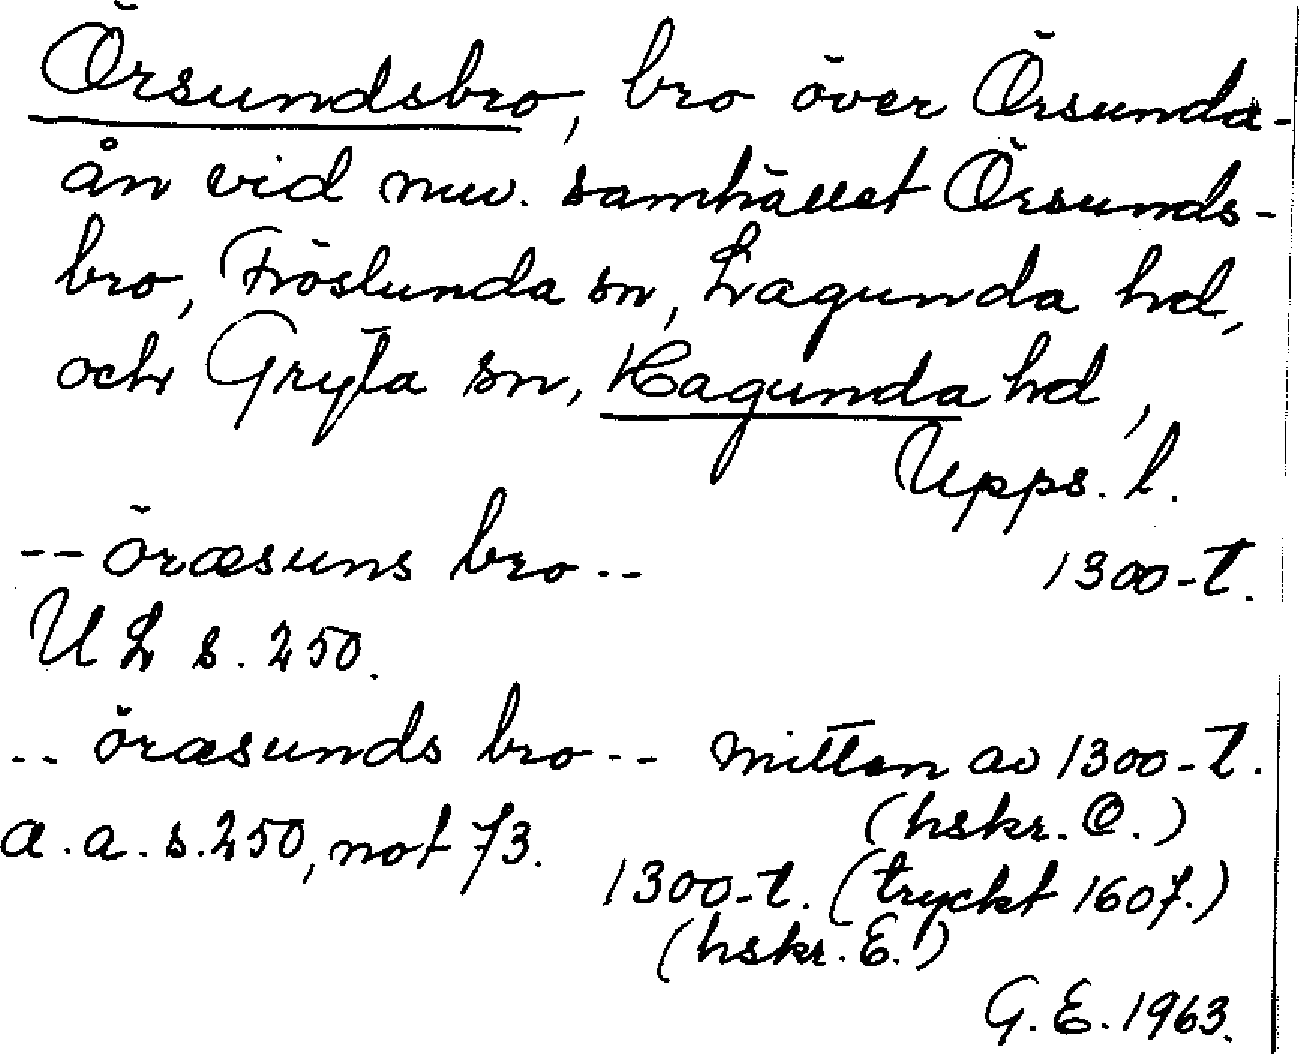 Örsundsbro, bro över Örsunda-
ån vid nuv. samhället Örsunds-
bro, Fröslunda sn, Lagunda hd,
och Gryta sn, Hagunda hd,
Upps. l.
-- öræsuns bro -- 1300-t.
UL s. 250.
-- öræsunds bro -- mitten av 1300-t.
(hskr. C.)
a.a. s. 250, not 73.
1300-t. (tryckt 1607.)
(hskr. E.)
G.E. 1963.